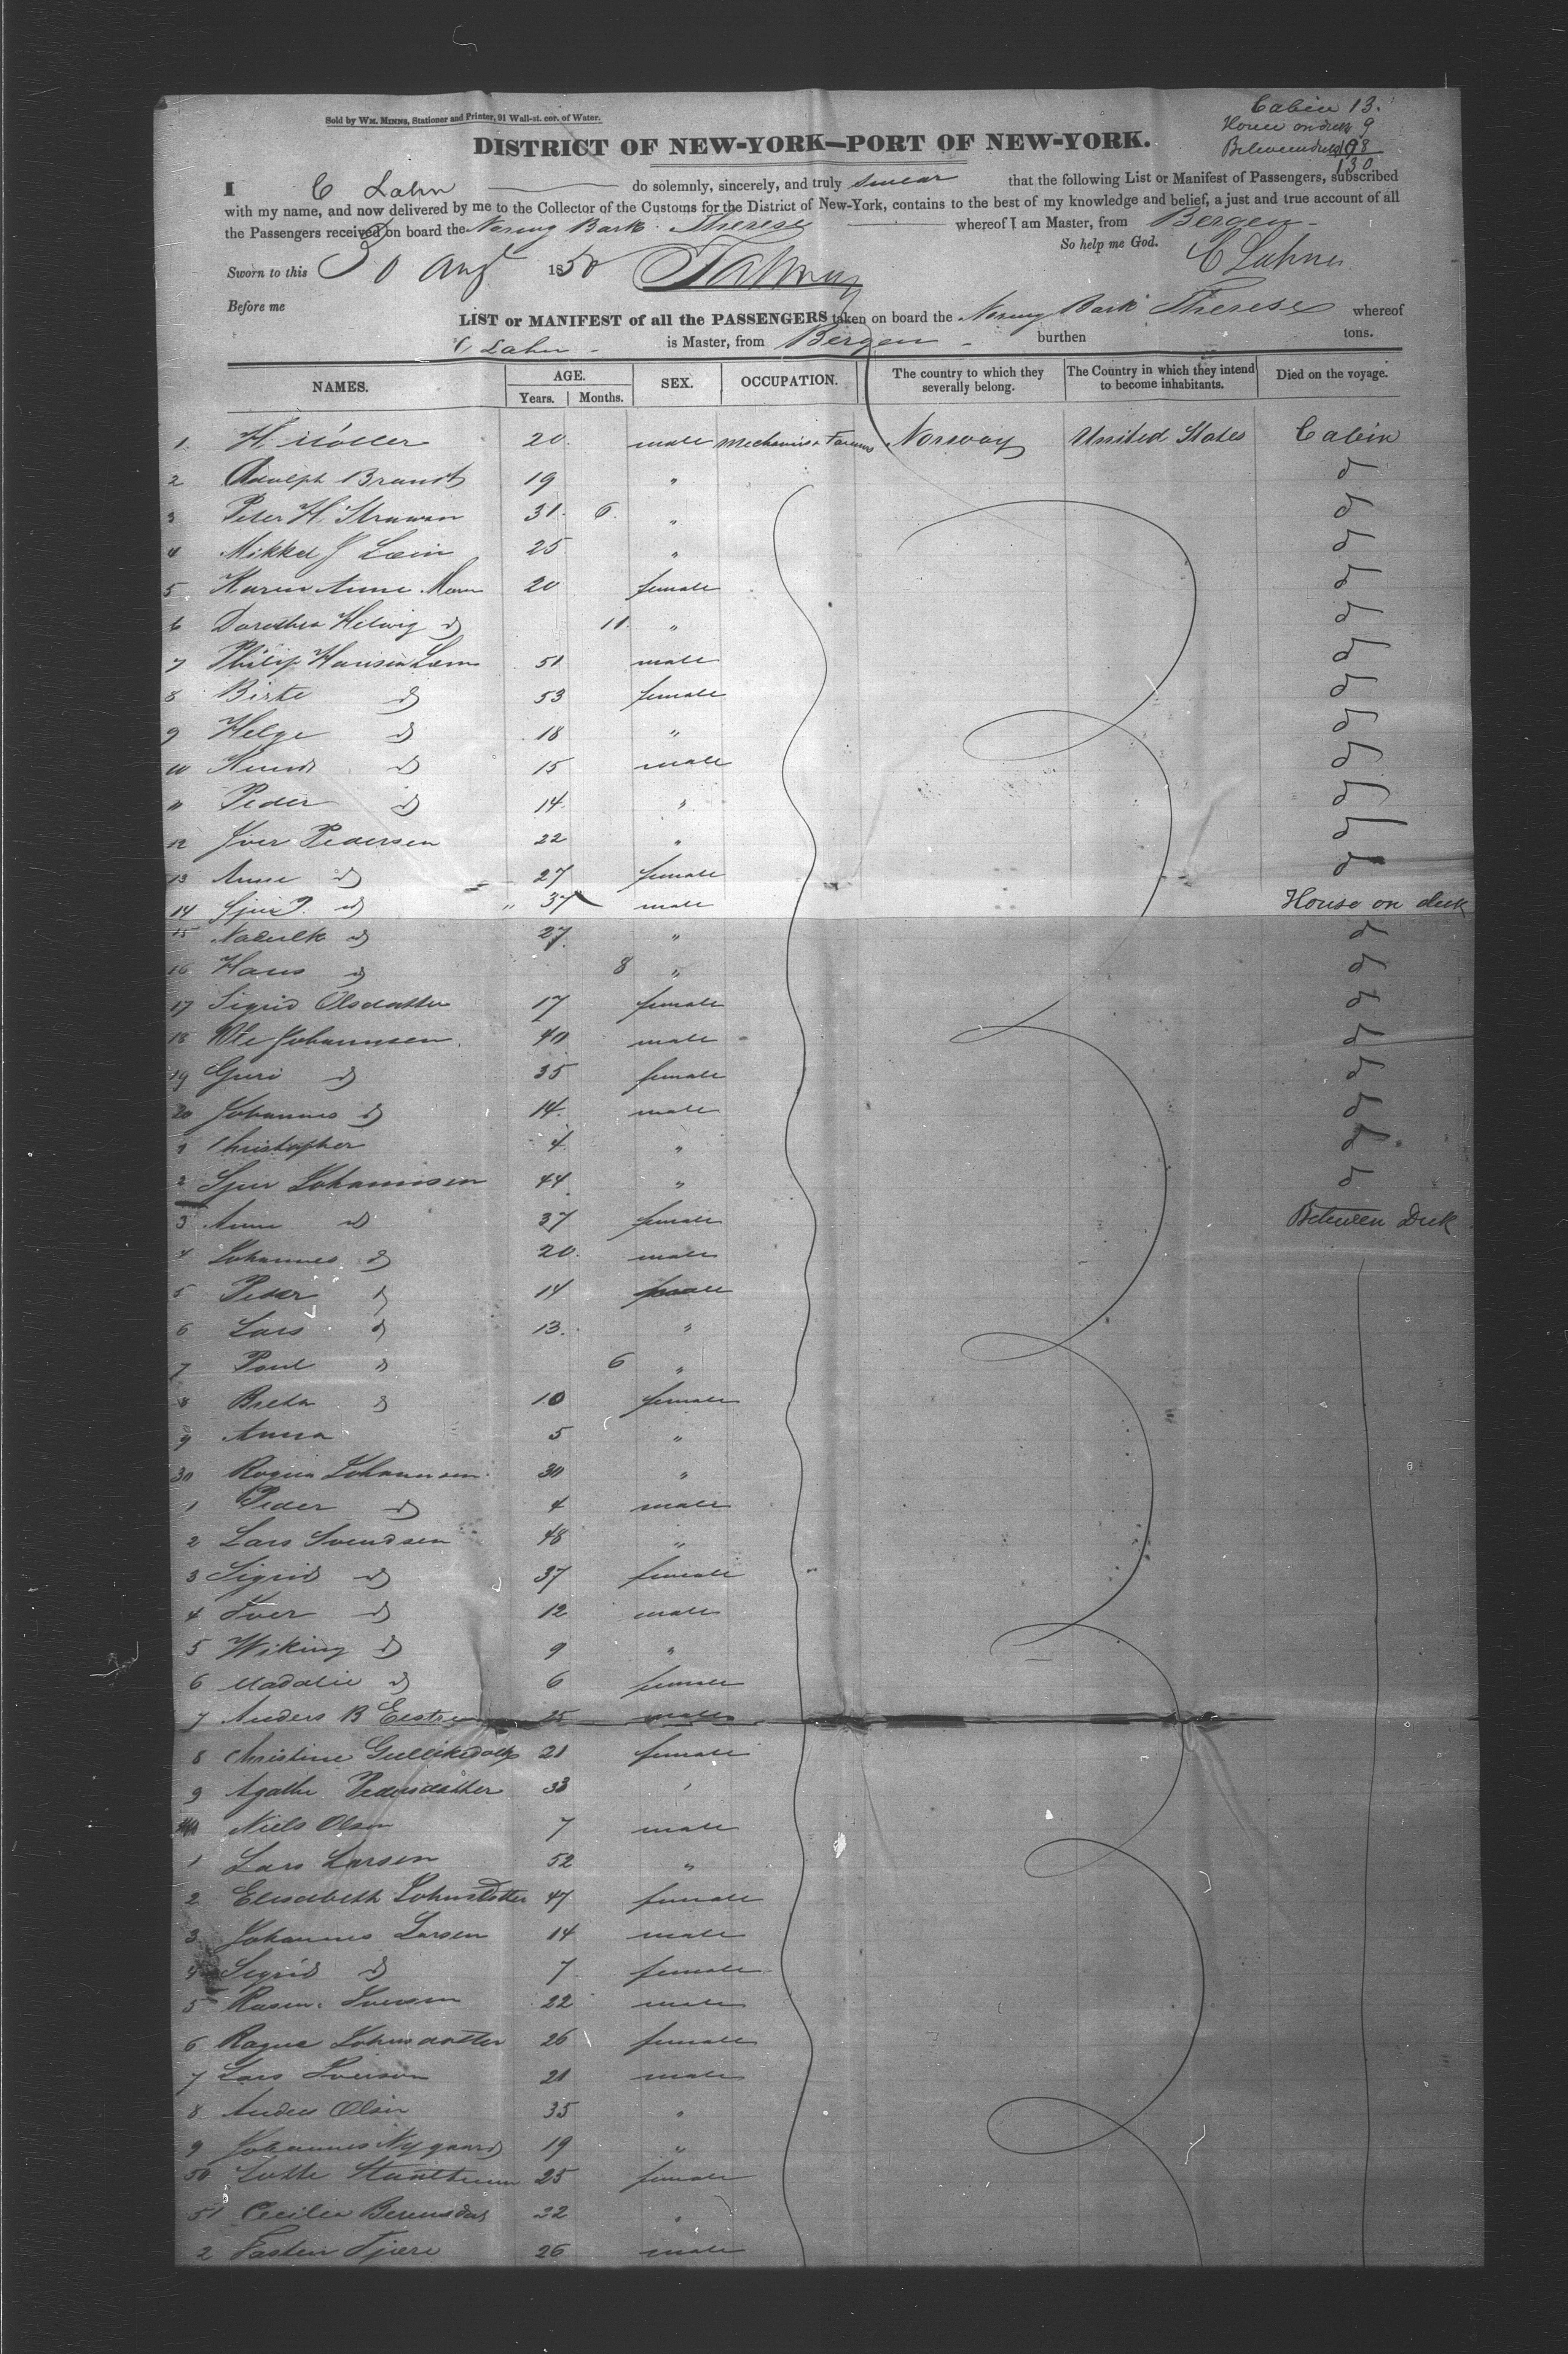 Cabin 13.
House on deck 9
Between deck 108
130
Sold by WM. MINNS, Stationer and Printer, 91 Wall-st. cor. of Water.
DISTRICT OF NEW-YORK—PORT OF NEW-YORK.
I C Lahn do solemnly, sincerely, and truly swear that the following List or Manifest of Passengers, subscribed
with my name, and now delivered by me to the Collector of the Customs for the District of New-York, contains to the best of my knowledge and belief, a just and true account of all
the Passengers received on board the Norweg Bark Therese whereof I am Master, from Bergen
So help me God.
Sworn to this 30 Augt 1850
Before me
LIST or MANIFEST of all the PASSENGERS taken on board the Norweg Bark Therese whereof
C Lahn is Master, from Bergen burthen tons.
NAMES. AGE. Years. Months. SEX. OCCUPATION. The country to which they severally belong. The Country in which they intend to become inhabitants. Died on the voyage.
1 H Möller 20 male Mechanics & Farmers Norway United States Cabin
2 Adolph Brandt 19 " d
3 Peter H. 31 6 " d
4 Mikkel J 25 " d
5 Karen Anne 20 female d
6 Dorothea Helwig d 11 " d
7 Philip Hansen 51 male d
8 Birte d 53 female d
9 Helge d 18 " d
10 Knud d 15 male d
11 Peder d 14 " d
12 Iver Pedersen 22 " d
13 Anne d 27 female d
14 d 37 male House on deck
15 d 27 " d
16 Hans d 8 " d
17 Sigrid Olsdatter 17 female d
18 Ole Johannesen 40 male d
19 Guri d 35 female d
20 Johannes d 14 male d
1 Christopher 4 " d
2 Sjur Johannesen 44 " d
3 Anne d 37 female Between Deck
4 Johannes d 20 male
5 Peder d 14 male
6 Lars d 13 "
7 Poul d 6 "
8 Breta d 10 female
9 Anna 5 "
30 Ragna Johannesen 30 "
1 Peder d 4 male
2 Lars Svendsen 48 "
3 Sigrid d 37 female
4 Iver d 12 male
5 Wiking d 9 "
6 d 6 female
7 Anders B 25 male
8 Christine 21 female
9 Agathe Pedersdatter 33 "
40 Niels Olsen 7 male
1 Lars Larsen 52 "
2 Elisabeth Johnsdatter 47 female
3 Johannes Larsen 14 male
4 Sigrid d 7 female
5 Iversen 22 male
6 Ragna Johnsdatter 26 female
7 Lars Iverson 21 male
8 Anders Olsen 35 "
9 Johannes Nygaard 19 "
50 25 female
51 Cecilie 22 "
2 26 male